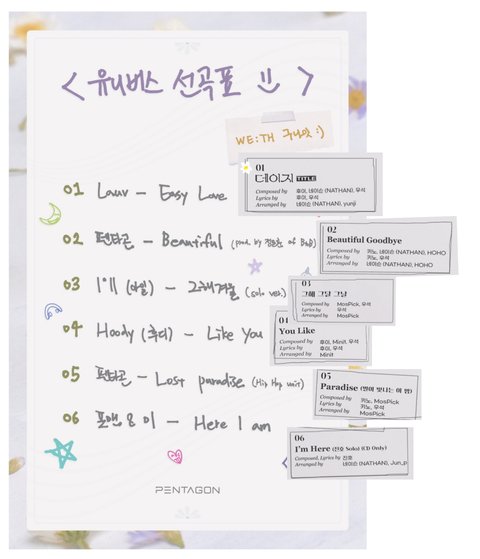 <유니버스 선곡표 >
WE:TH 구니밋 :)
01 Lauv - Easy Love
01
데이지 TITLE
Composed by 후이, 네이슨 (NATHAN), 우석
Lyrics by 후이, 우석
Arranged by 네이슨 (NATHAN), yunji
02 펜타곤 - Beautiful (prod. by 정일훈 of BtoB)
02
Beautiful Goodbye
Composed by 키노, 네이슨 (NATHAN), HOHO
Lyrics by 키노, 우석
Arranged by 네이슨 (NATHAN), HOHO
03 (아일) - 그해겨울 (solo ver.)
03
그해 그달 그날
Composed by MosPick, 우석
Lyrics by 우석
Arranged by MosPick
04 Hoody (후디) - Like You
04
You Like
Composed by 후이, Minit, 우석
Lyrics by 후이, 우석
Arranged by Minit
05 펜타곤 - Lost paradise (Hip Hop unit)
05
Paradise (별이 빛나는 이 밤)
Composed by 키노, MosPick
Lyrics by 키노, 우석
Arranged by MosPick
06 포맨 & 미 - Here I am
06
I'm Here (진호 Solo) (CD Only)
Composed, Lyrics by 진호
Arranged by 네이슨 (NATHAN), Jun_p
PENTAGON